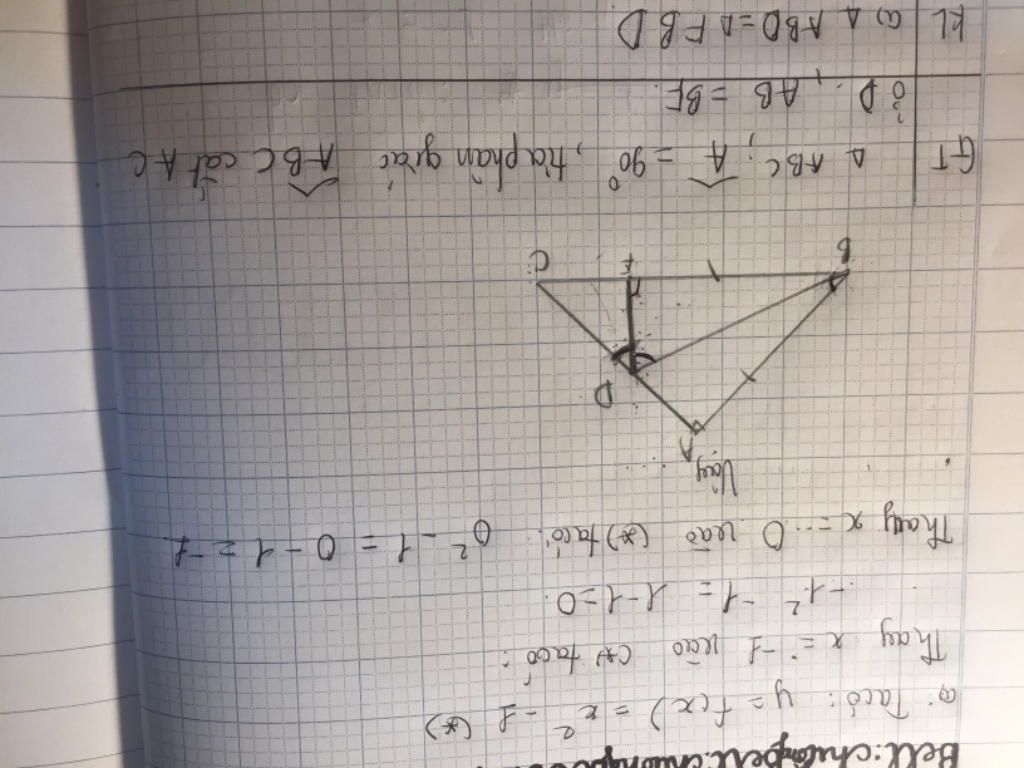 a. Ta có: y = f(x) = x² - 1 (*)
Thay x = -1 vào (*) ta có:
-1² - 1 = 1 - 1 = 0.
Thay x = 0 vào (*) ta có: 0² - 1 = 0 - 1 = -1
Vậy
A
D
B
F
C
GT Δ ABC; Â = 90°, tia phân giác ABC cắt AC
ở D, AB = BF.
KL a) Δ ABD = Δ FBD